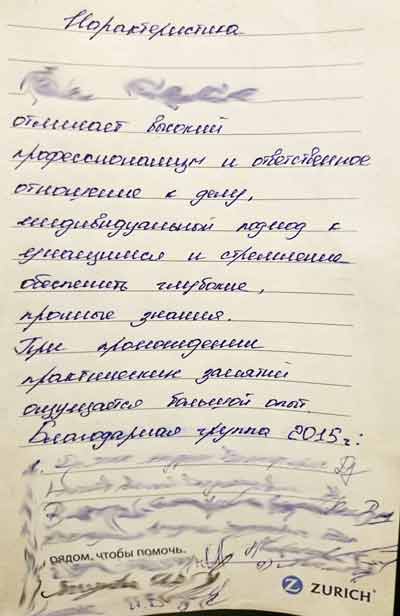 Характеристика
отличает высокий
профессионализм и ответственное
отношение к делу,
индивидуальный подход к
учащимся и стремление
обеспечить глубокие,
прочные знания.
При прохождении
практических занятий
ощущается большой опыт.
Благодарная группа 2015 г.:
1.
рядом, чтобы помочь.
ZURICH